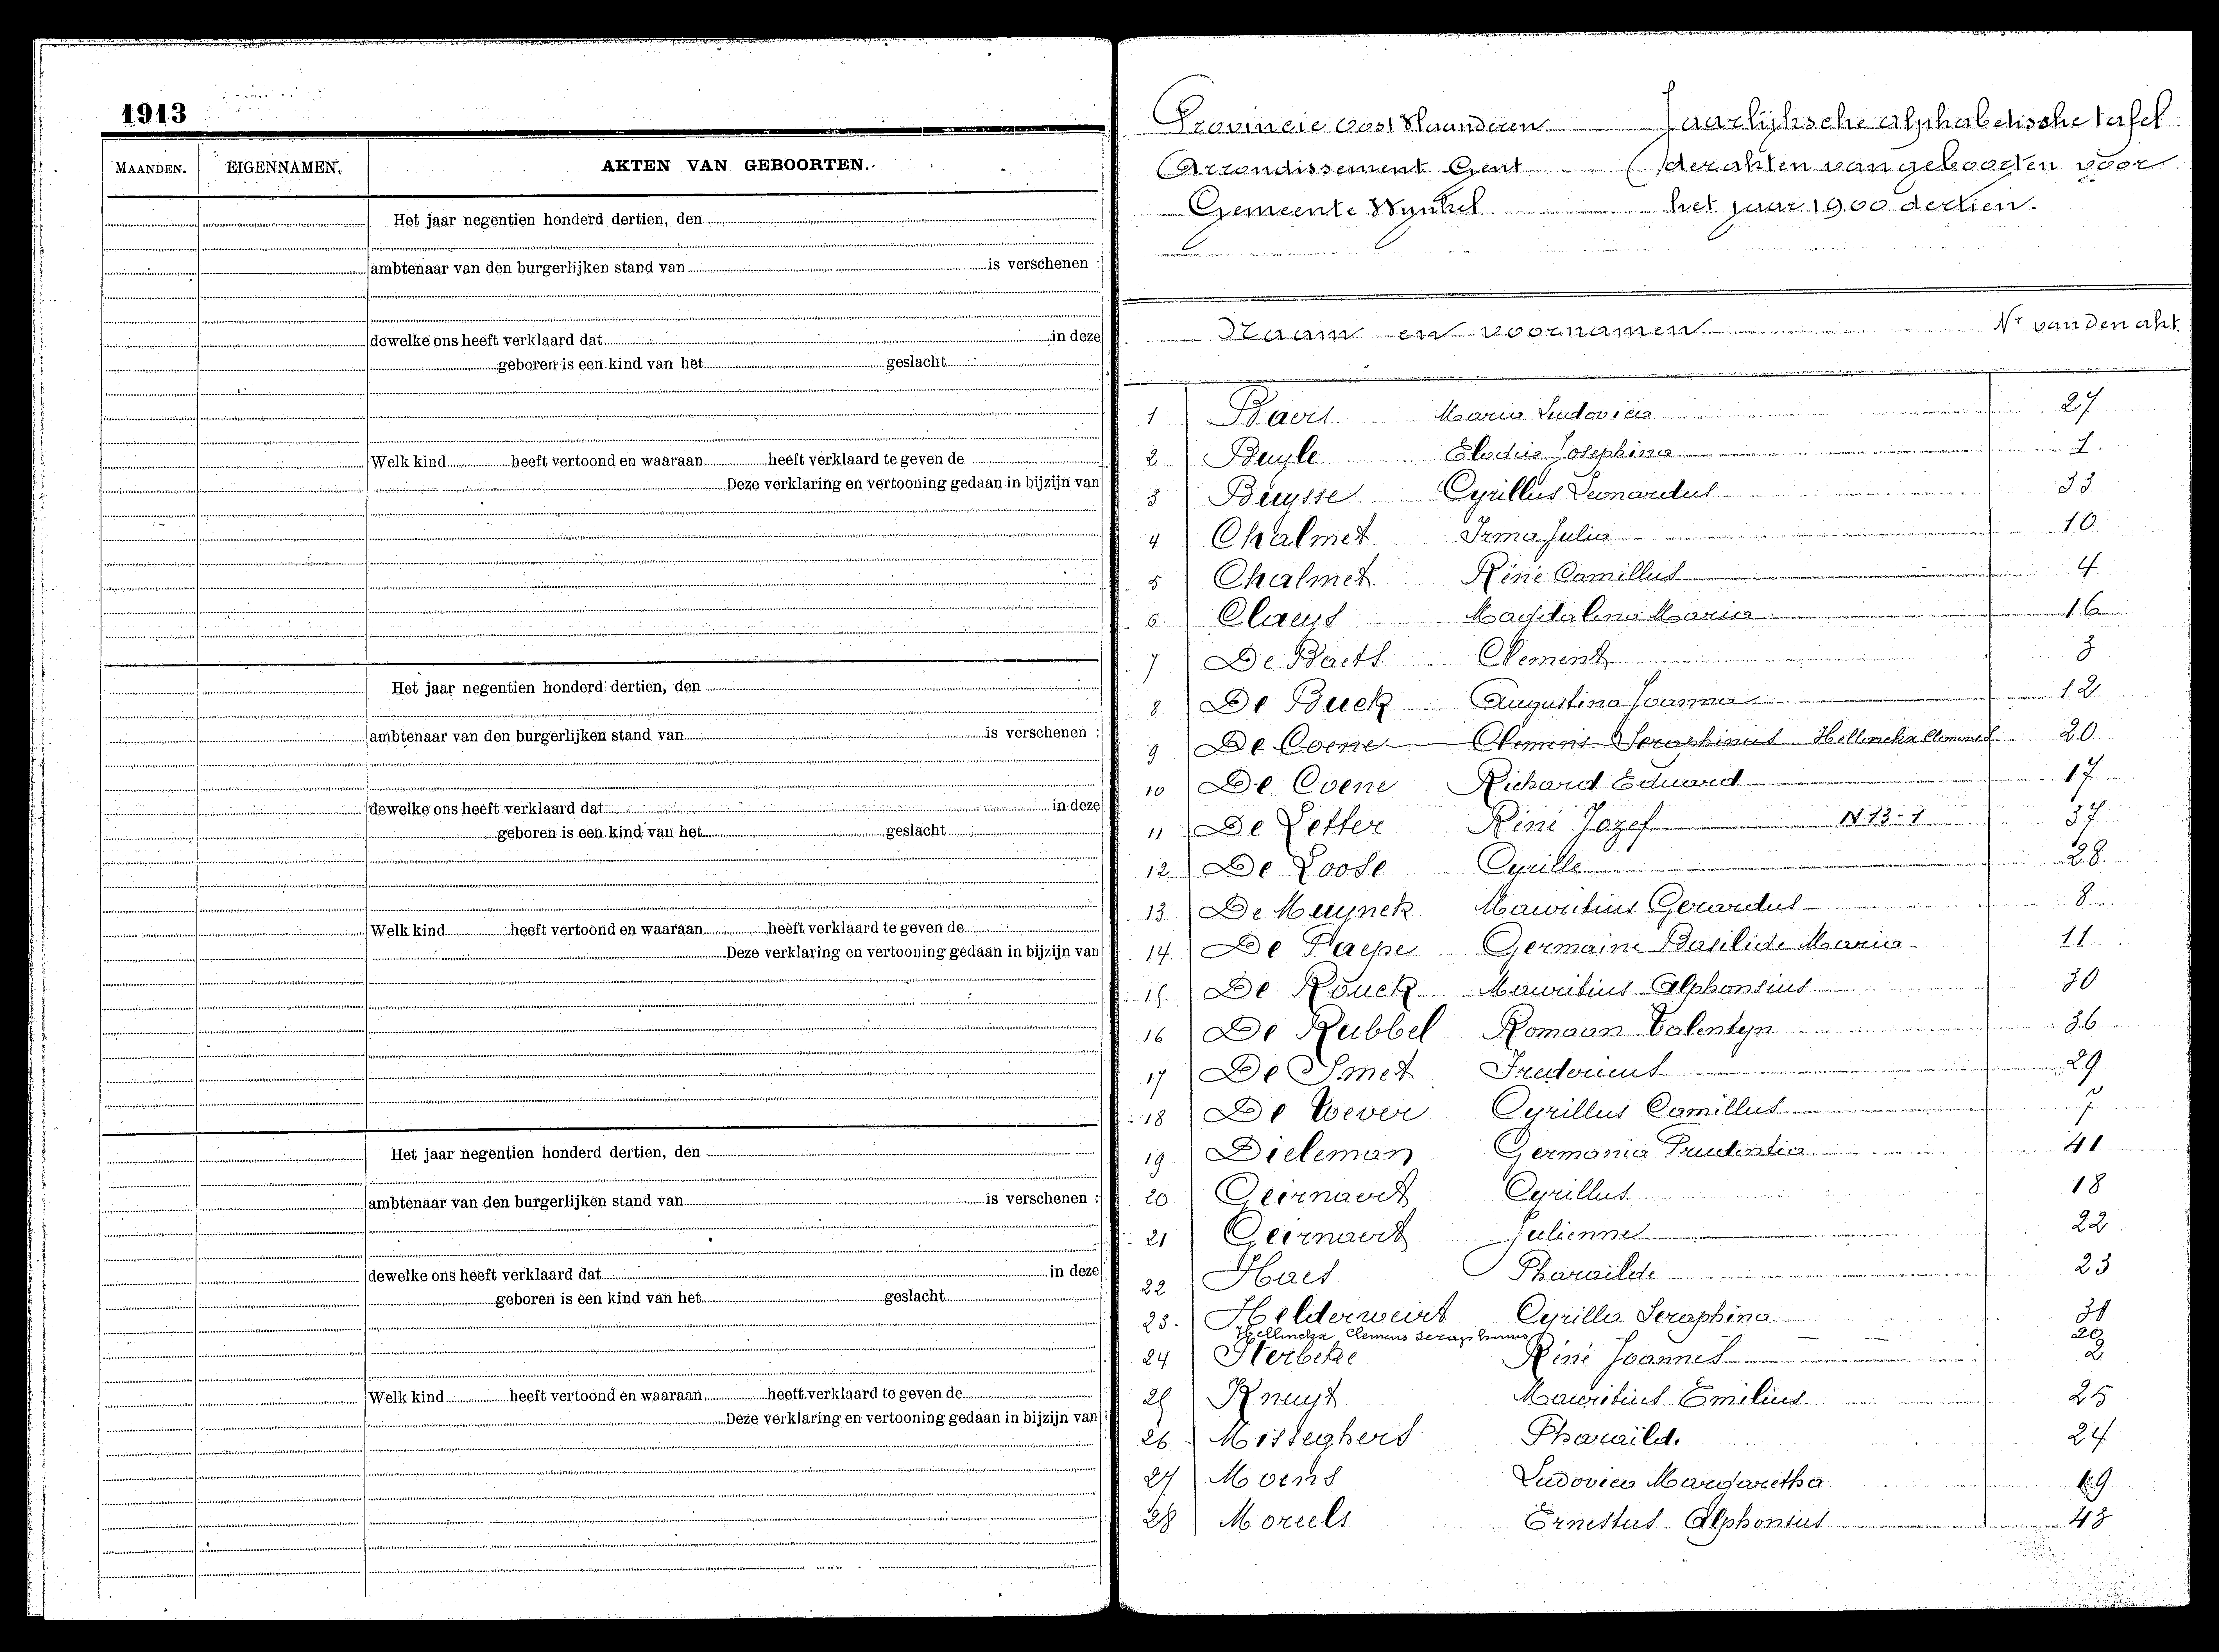 1913
MAANDEN. EIGENNAMEN. AKTEN VAN GEBOORTEN.
Het jaar negentien honderd dertien, den
ambtenaar van den burgerlijken stand van is verschenen :
dewelke ons heeft verklaard dat in deze
geboren is een kind van het geslacht
Welk kind heeft vertoond en waaraan heeft verklaard te geven de
Deze verklaring en vertooning gedaan in bijzijn van
Het jaar negentien honderd dertien, den
ambtenaar van den burgerlijken stand van is verschenen :
dewelke ons heeft verklaard dat in deze
geboren is een kind van het geslacht
Welk kind heeft vertoond en waaraan heeft verklaard te geven de
Deze verklaring en vertooning gedaan in bijzijn van
Het jaar negentien honderd dertien, den
ambtenaar van den burgerlijken stand van is verschenen :
dewelke ons heeft verklaard dat in deze
geboren is een kind van het geslacht
Welk kind heeft vertoond en waaraan heeft verklaard te geven de
Deze verklaring en vertooning gedaan in bijzijn van
Provincie Oost Vlaanderen Jaarlijksche alphabetische tafel
Arrondissement Gent der akten van geboorten voor
Gemeente Wynkel het jaar 1900 dertien.
Naam en voornamen Nr van den akt
1 Baers Maria Ludovica 27
2 Buyle Elodia Josephina 1
3 Buysse Cyrillus Leonardus 33
4 Chalmet Irma Julia 10
5 Chalmet Réné Camillus 4
6 Claeys Magdalena Maria 16
7 De Baets Clement 3
8 De Buck Augustina Joanna 12
9 De Coene Clemens Seraphinus Hellinckx Clemens S 20
10 De Coene Richard Eduard 17
11 De Letter Réné Jozef N 13-1 37
12 De Loose Cyrille 28
13 De Muynck Mauritius Gerardus 8
14 De Paepe Germaine Basilide Maria 11
15 De Rouck Mauritius Alphonsius 30
16 De Rubbel Romaan Valentyn 36
17 De Smet Fredericus 29
18 De Wever Cyrillus Camillus 7
19 Dieleman Germania Prudentia 41
20 Geirnaert Cyrillus 18
21 Geirnaert Julienne 22
22 Haes Pharailde 23
23. Helderweirt Cyrilla Seraphina 31
Hellinckx Clemens Seraphinus 20
24 Sterbcke Réné Joannes 2
25 Knuyt Mauritius Emilius 25
26 Misteghers Pharailde 24
27 Moens Ludovica Margaretha 19
28 Moreels Ernestus Alphonsius 43